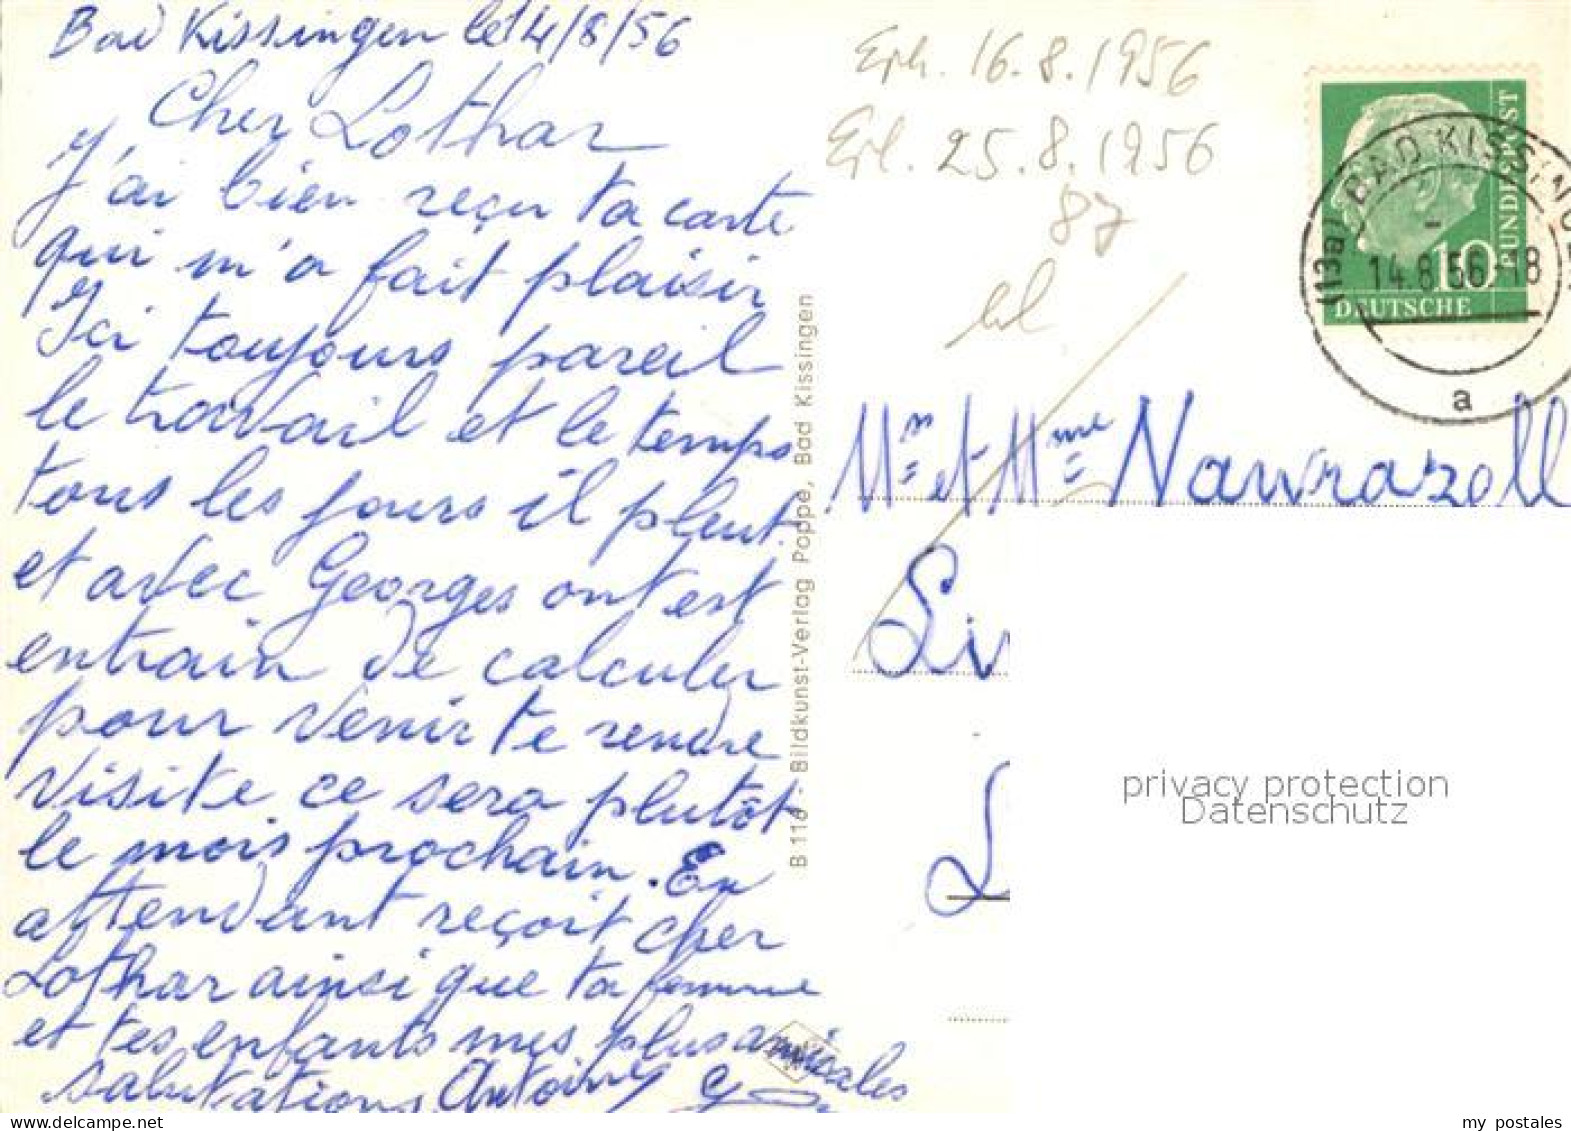 Bad Kissingen le 14/8/56
Cher Lothar
J'ai bien reçu ta carte
qui m'a fait plaisir
Ici toujours pareil
le travail et le temps
tous les jours il pleut.
et avec Georges ont est
entrain de calculer
pour venir te rendre
visite ce sera plutôt
le mois prochain. En
attendant reçoit cher
Lothar ainsi que ta femme
et tes enfants mes plus amicales
salutations Antoine
B 116 - Bildkunst-Verlag Poppe, Bad Kissingen
Erh. 16.8.1956
Erl. 25.8.1956
87
10
DEUTSCHE
BUNDESPOST
(13a) BAD KISSINGEN
14.8.56-18
a
Mr et Mme Nawrazell
privacy protection
Datenschutz
my postales